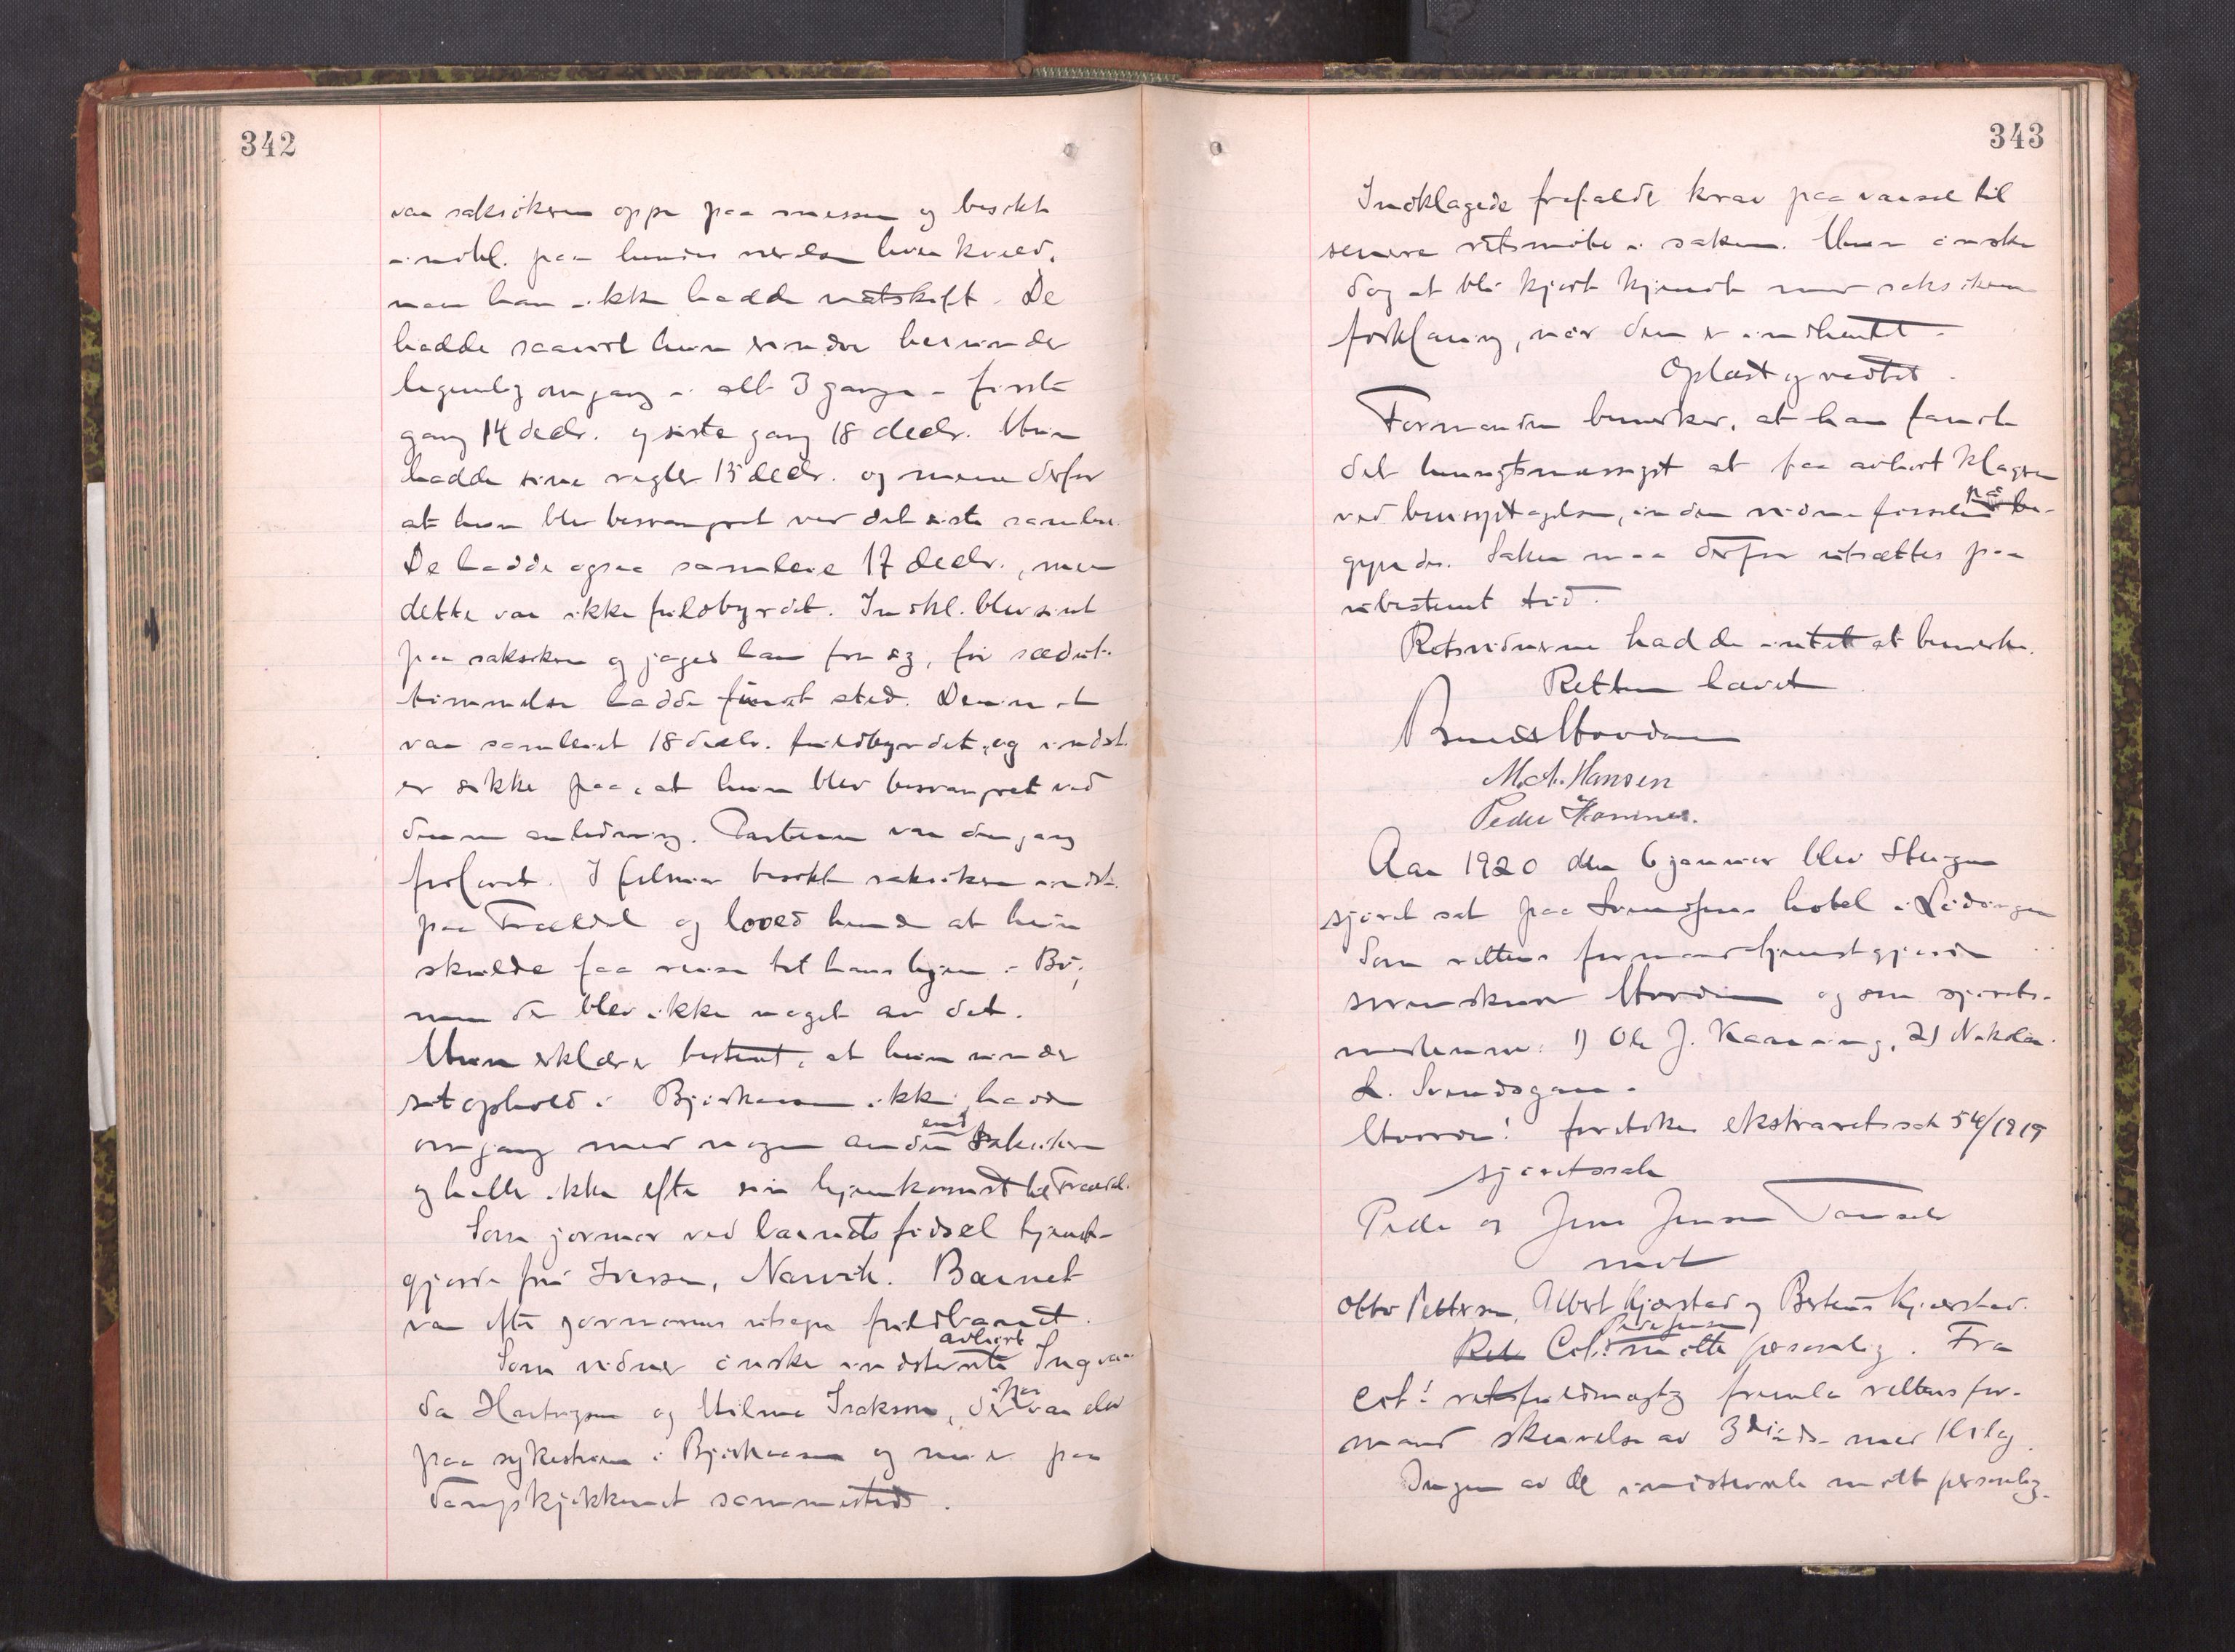 342
var saksøkeren oppe paa messen og besøkte
indkl. paa hendes værelse hver kveld,
naar han ikke hadde natskift. De
hadde saavidt hun erindrer herunder
legemlig omgang i alt 3 ganger - første
gang 14 decbr. og siste gang 18 decbr. Hun
hadde sine regler 15 decbr. og mener derfor
at hun blev besvangret ved det siste samleie.
De hadde ogsaa samleie 17 decbr., men
dette var ikke fuldbyrdet. Indkl. blev sint
paa saksøkeren og jaget ham fra sig, før sædut-
tømmelse hadde fundet sted. Derimot
var samleiet 18 decbr. fuldbyrdet, og indst.
er sikker paa, at hun blev besvangret ved
denne anledning. Parterne var dengang
forlovet. I februar besøkte saksøkeren indst.
paa Trældal og lovet hende at hun
skulde faa reise til hans hjem i Bø,
men der blev ikke noget av det.
Hun erklærer bestemt, at hun under
sit ophold i Bjørkaasen ikke hadde
omgang med nogen anden end saksøkeren
og heller ikke efter sin hjemkomst til Trældal.
Som jormor ved barnets fødsel tjenst-
gjorde fru Iversen, Narvik. Barnet
var efter jormorens utsagn fuldbaaret.
Som vidner ønsker indstevnte avhørt Ingvar-
da Hartvigsen og Hilma Isaksen, der var eller
paa sykestuen i Bjørkaasen og nu er paa
Dampkjøkkenet sammesteds.
343
Indklagede frafaldt krav paa varsel til
senere retsmøte i saken. Hun ønsker
dog at bli gjort kjendt med saksøkerens
forklaring, naar den er indhentet.
Oplæst og vedtat.
Formanden bemerker, at han fandt
det hensigtsmæssigst at faa avhørt klageren
ved bevisoptagelse, inden vidneførselen paa be-
gyndes. Saken maa derfor utsættes paa
ubestemt tid.
Retsvidnerne hadde intet at bemerke.
Retten hævet
M. A. Hansen
Peder Hammer.
Aar 1920 den 6 januar blev Steigen
sjøret sat paa Svendsgaus hotel i Lødingen
Som rettens formand tjenstgjorde
sorenskriver Hovden og som sjørets-
medlemmer: 1) Ole J. Kanning, 2) Nikolai
L. Svendsgaue.
Hovden! foretokes ekstraretssak 54/1919
sjøretssak
Peder og Jens Jensen
mot
Otto Pettersen, Albert Kjærstad og Bertheus Kjærstad.
Ret Cit! Peder Jensen møtte personlig. Fra
Cit! retsfuldmægtig fremla rettens for-
mand skrivelse av 3 ds. med bilag.
Ingen av de indstevnte møtt personlig.